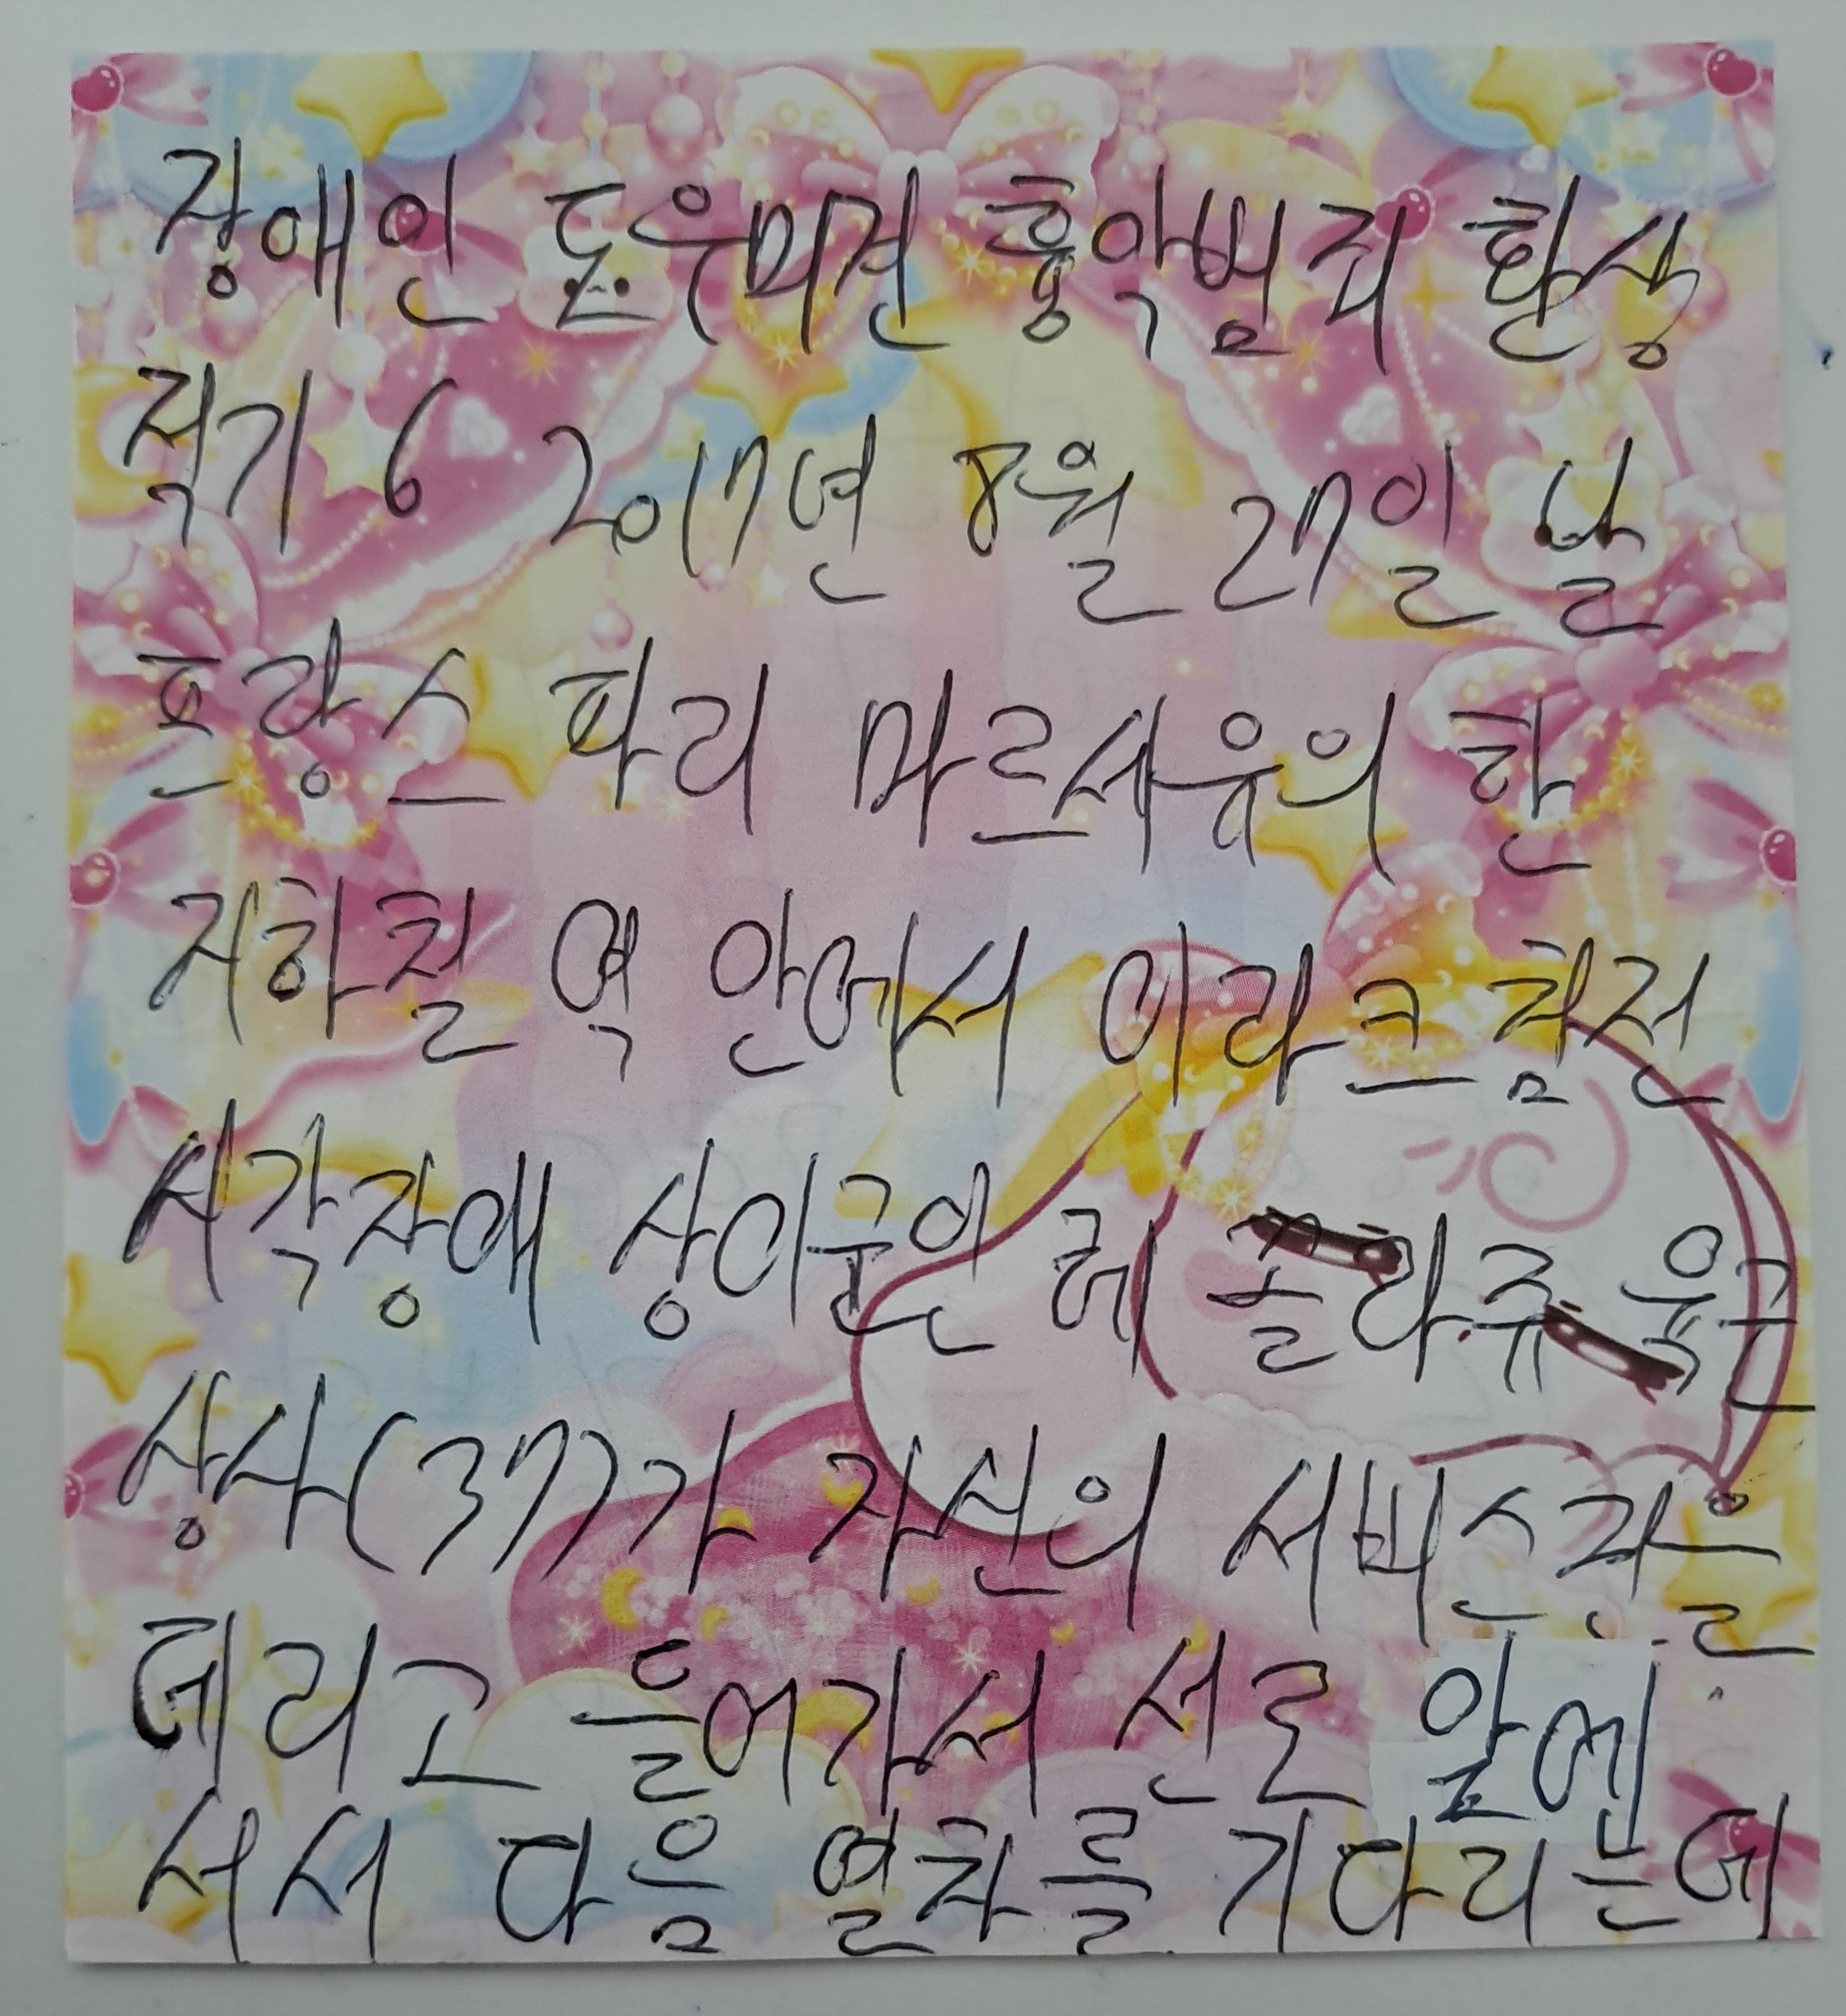 장애인 도우미견 흉악범죄 환상
적기 6 2017년 8월 27일 날
프랑스 파리 마르세유의 한
지하철 역 안에서 이라크참전
시각장애 상이군인 레 쏠라쥬 육군
상사(37)가 자신의 서비스견을
데리고 들어가서 선로 앞에
서서 다음 열차를 기다리는데